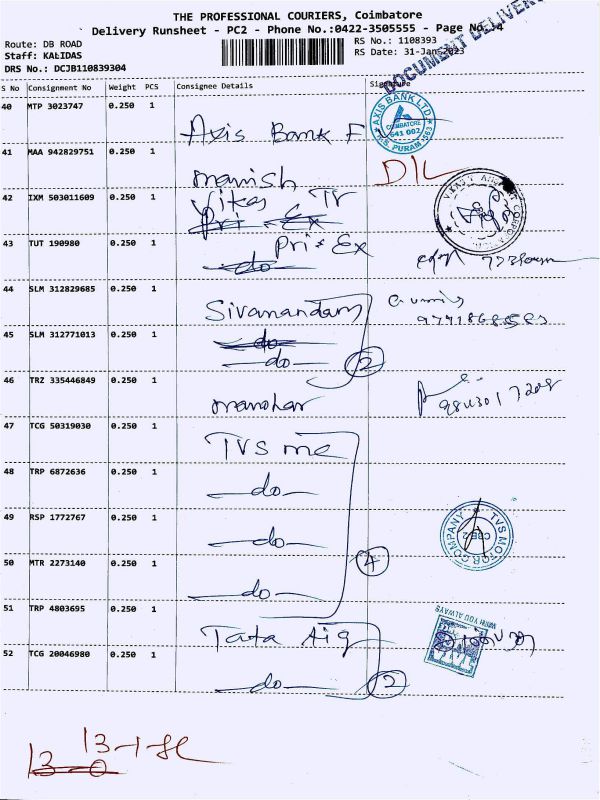 THE PROFESSIONAL COURIERS, Coimbatore
Delivery Runsheet - PC2 - Phone No.:0422-3505555 - Page No.:4
DOCUMENT DELIVERY
Route: DB ROAD
RS No.: 1108393
Staff: KALIDAS
RS Date: 31-Jan-2023
DRS No.: DCJB110839304
S No Consignment No Weight PCS Consignee Details Signature
40 MTP 3023747 0.250 1 Axis Bank F
AXIS BANK LTD.
COIMBATORE
641 002
R.S. PURAM
41 MAA 942829751 0.250 1 manish
DIL
42 IXM 503011609 0.250 1 Vikas Tr
Pri - Ex
43 TUT 190980 0.250 1 Pri - Ex
do
44 SLM 312829685 0.250 1 Sivanandam
45 SLM 312771013 0.250 1 do
do 2
46 TRZ 335446849 0.250 1 manohar
47 TCG 50319030 0.250 1 TVS mc
48 TRP 6872636 0.250 1 do
49 RSP 1772767 0.250 1 do
TVS MOTOR COMPANY
CBE-2
50 MTR 2273140 0.250 1 do 4
51 TRP 4803695 0.250 1 Tata Aig
WITH YOU ALWAYS
52 TCG 20046980 0.250 1 do 2
13-1-
13 - 0